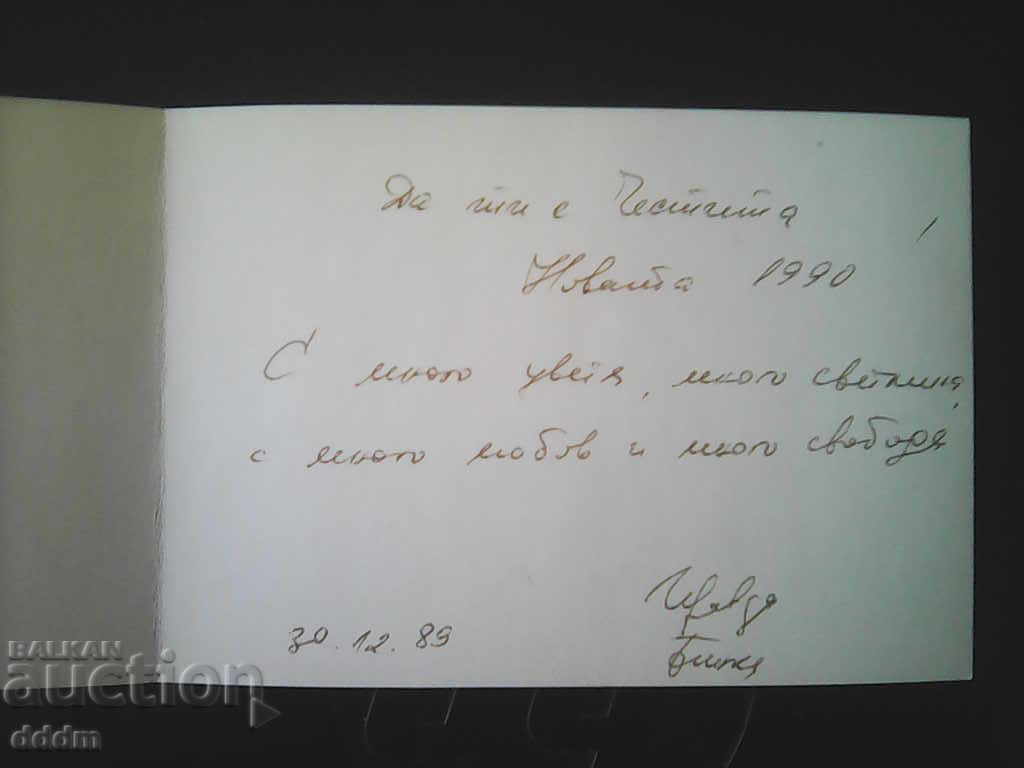 Да ти е Честита
Новата 1990 !
С много цветя, много светлина,
с много любов и много свобода
30.12.89
BALKAN
auction
dddm